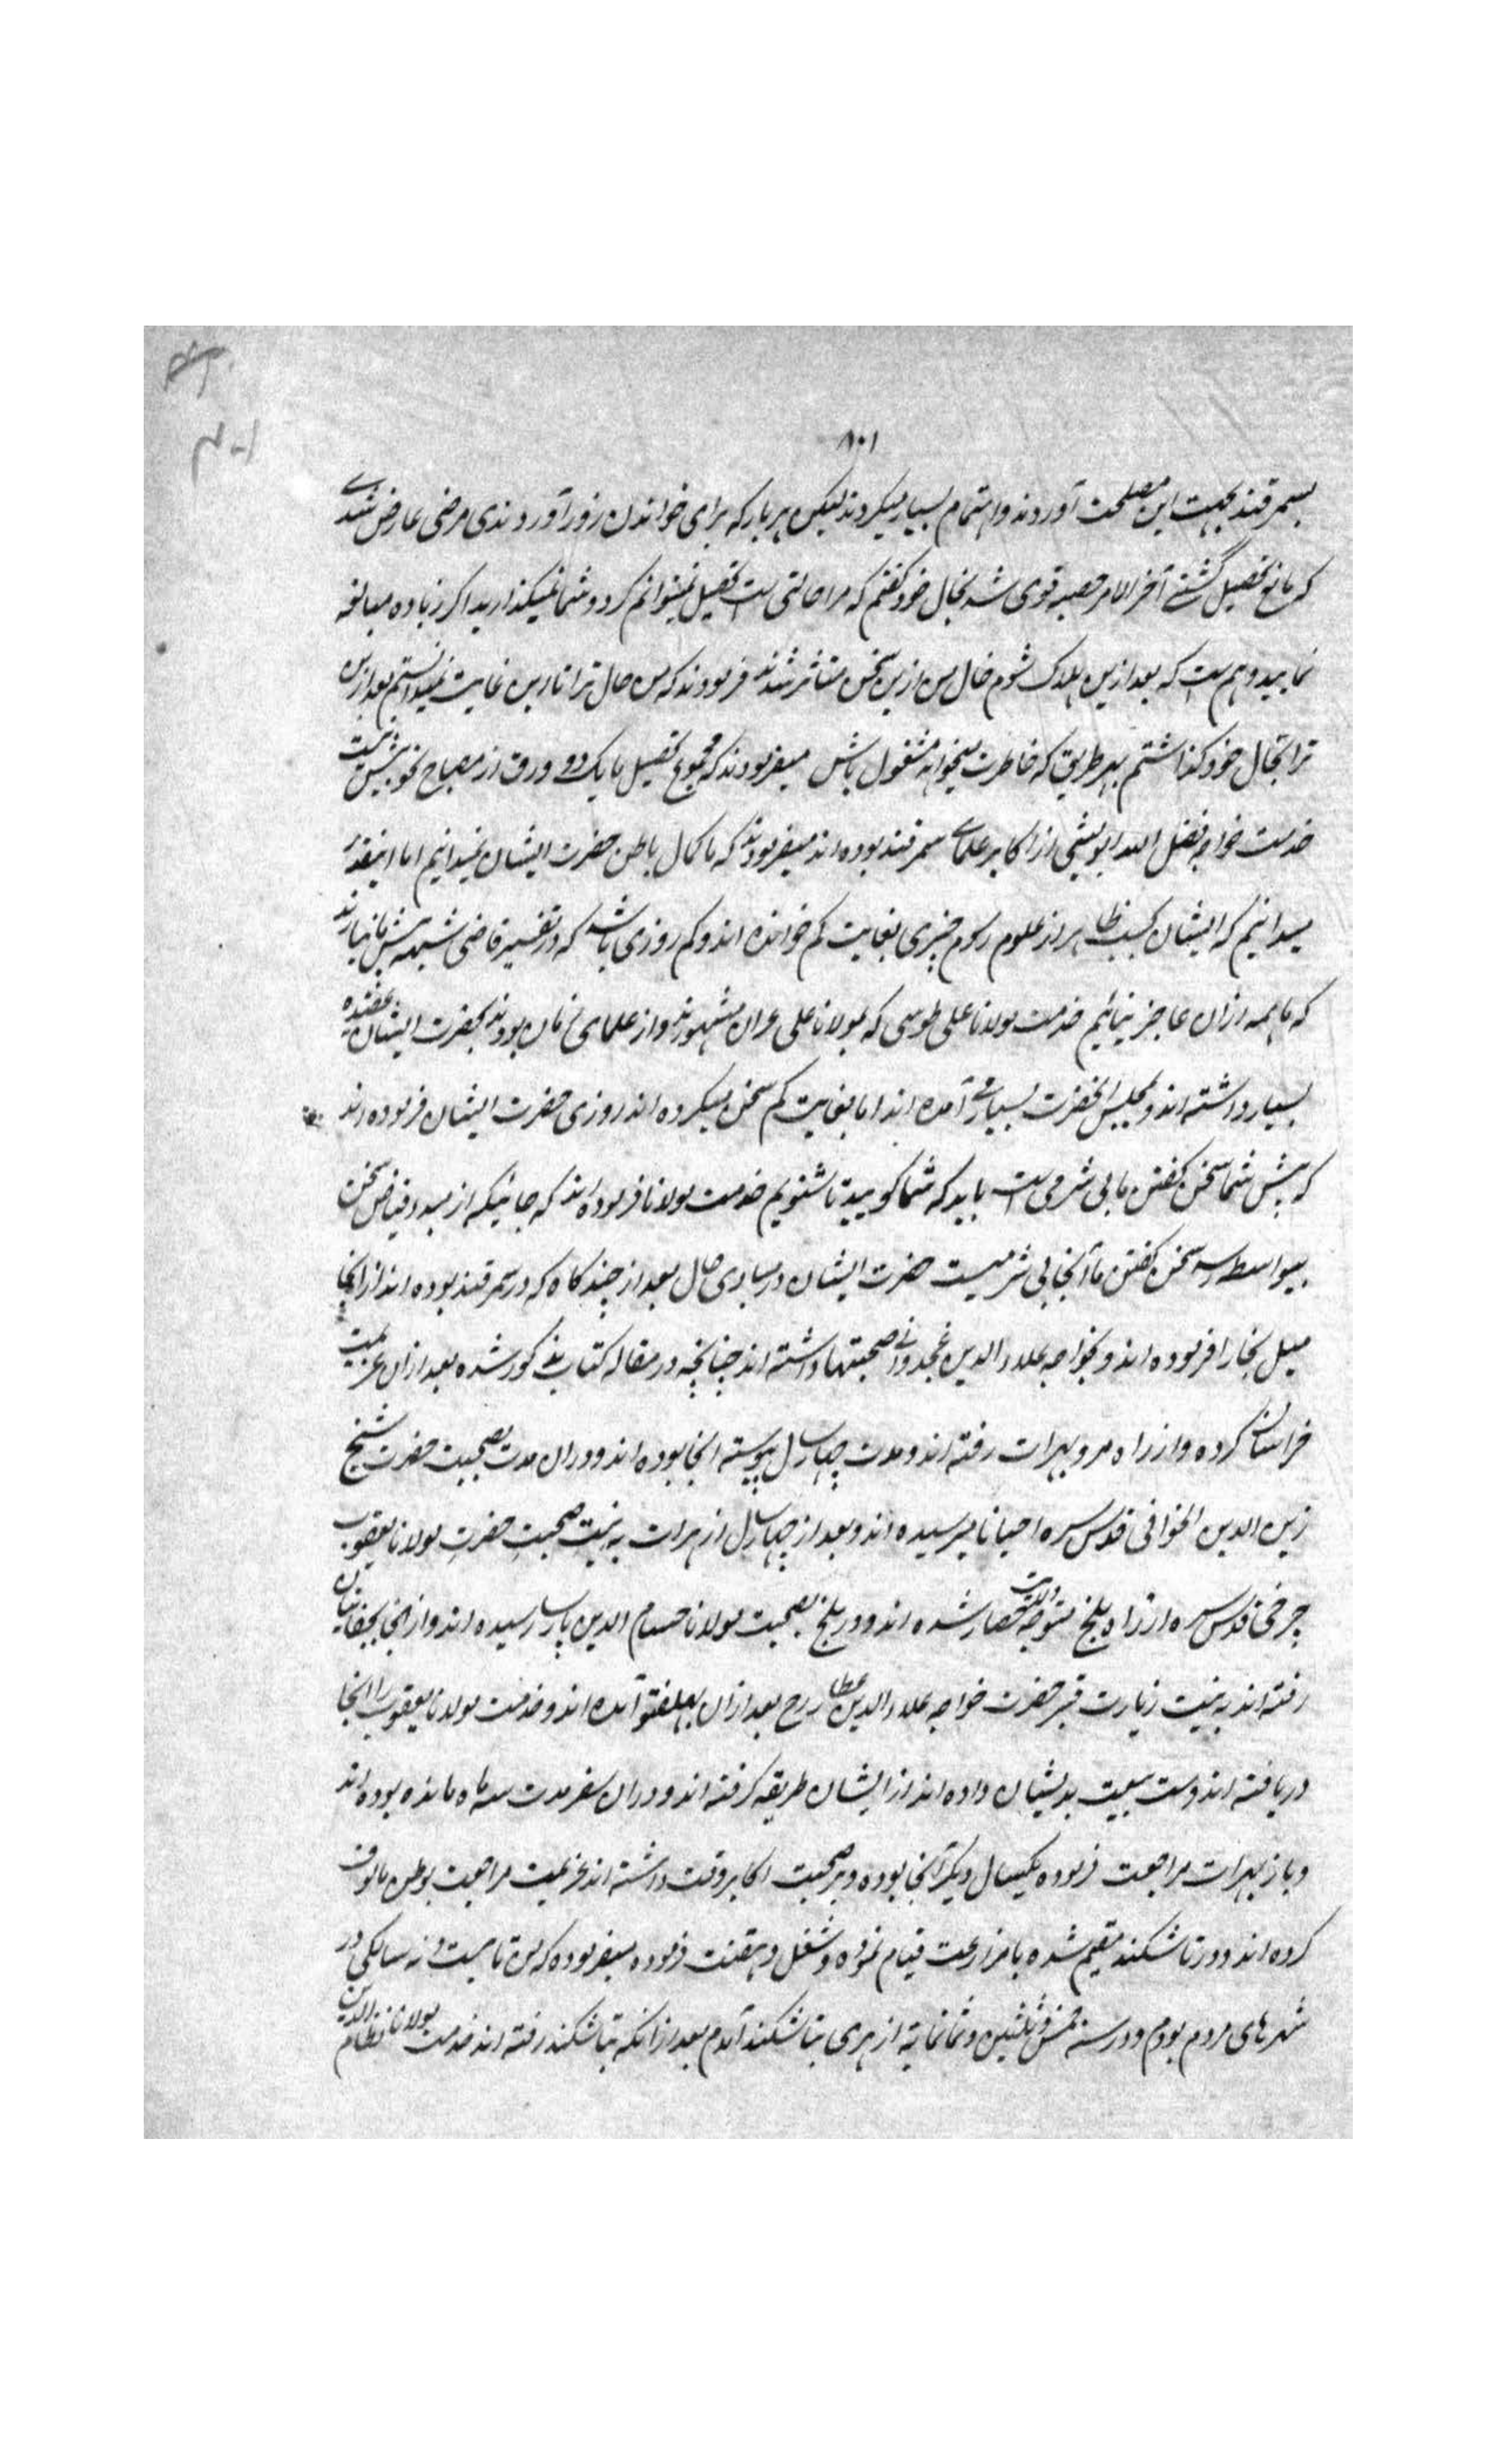 ۸۰۱
بسمرقند بجهت این مصلحت آوردند و اهتمام بسیار میکردند لیکن هر بار که برای خواندن زور آوردندی مرضی عارض شدی
که مانع تحصیل گشتی آخر الامر حصبه قوی شد بخال خود گفتم که مرا حالتی است تحصیل نمیتوانم کرد و شما نمیگذارید اگر زیاده مبالغه
نمایید وهم است که بعد ازین هلاک شوم خال من ازین سخن متاثر شدند فرمودند که من حال ترا تا این غایت نمیدانستم بعد ازین
ترا بحال خود گذاشتم بهر طریق که خاطرت میخواهد مشغول باش میفرمودند که مجموع تحصیل ما یک دو ورق از مصباح نحو بیش نیست
خدمت خواجه فضل الله ابو لیثی از اکابر علمای سمرقند بوده اند میفرمودند که ما کمال باطن حضرت ایشان نمیدانیم اما اینقدر
میدانیم که ایشان بحسب ظاهر از علوم رسوم چیزی بغایت کم خوانده اند و کم روزی باشد که در تفسیر قاضی شبهه پیش ما نیارند
که ما همه ازان عاجز نیائیم خدمت مولانا علی طوسی که بمولانا علی عران مشهورند و از علمای زمان بودند بحضرت ایشان عقیده
بسیار داشته اند و بمجلس آنحضرت بسیار می آمده اند اما بغایت کم سخن میکرده اند روزی حضرت ایشان فرموده اند
که پیش شما سخن گفتن ما بی شرمی است باید که شما گویید تا شنویم خدمت مولانا فرموده اند که جائیکه از مبدء فیاض سخن
بیواسطه رسد سخن گفتن ما آنجا بی شرمیست حضرت ایشان در مبادی حال بعد از چند گاه که در سمرقند بوده اند از آنجا
میل بخارا فرموده اند و بخواجه علاء الدین غجدوانی صحبتها داشته اند چنانچه در مقاله کتاب مذکور شده بعد ازان عزیمت
خراسان کرده و از راه مرو بهرات رفته اند و مدت چهار سال پیوسته آنجا بوده اند و دران مدت بصحبت حضرت شیخ
زین الدین الخوافی قدس سره احیانا میرسیده اند و بعد از چهار سال از هرات به نیت صحبت حضرت مولانا یعقوب
چرخی قدس سره از راه بلخ متوجه ولایت حصار شده اند و در بلخ بصحبت مولانا حسام الدین پارسا رسیده اند و از آنجا بچغانیان
رفته اند به نیت زیارت قبر حضرت خواجه علاء الدین عطار رح بعد ازان بهلفتو آمده اند و خدمت مولانا یعقوب را آنجا
دریافته اند و دست بیعت بدیشان داده اند از ایشان طریقه گرفته اند و دران سفر مدت سه ماه مانده بوده اند
و باز بهرات مراجعت فرموده یکسال دیگر آنجا بوده و بر صحبت اکابر وقت داشته اند عزیمت مراجعت بوطن مالوف
کرده اند و در تاشکند مقیم شده با مزارعت قیام نموده و شغل دهقنت فرموده میفرموده که من تا بیست و نه سالگی در
شهرهای مردم بودم و در سنه خمس و ثلثین و ثمانمایة از هری بتاشکند آمدم بعد از آنکه بتاشکند رفته اند خدمت مولانا نظام الدین